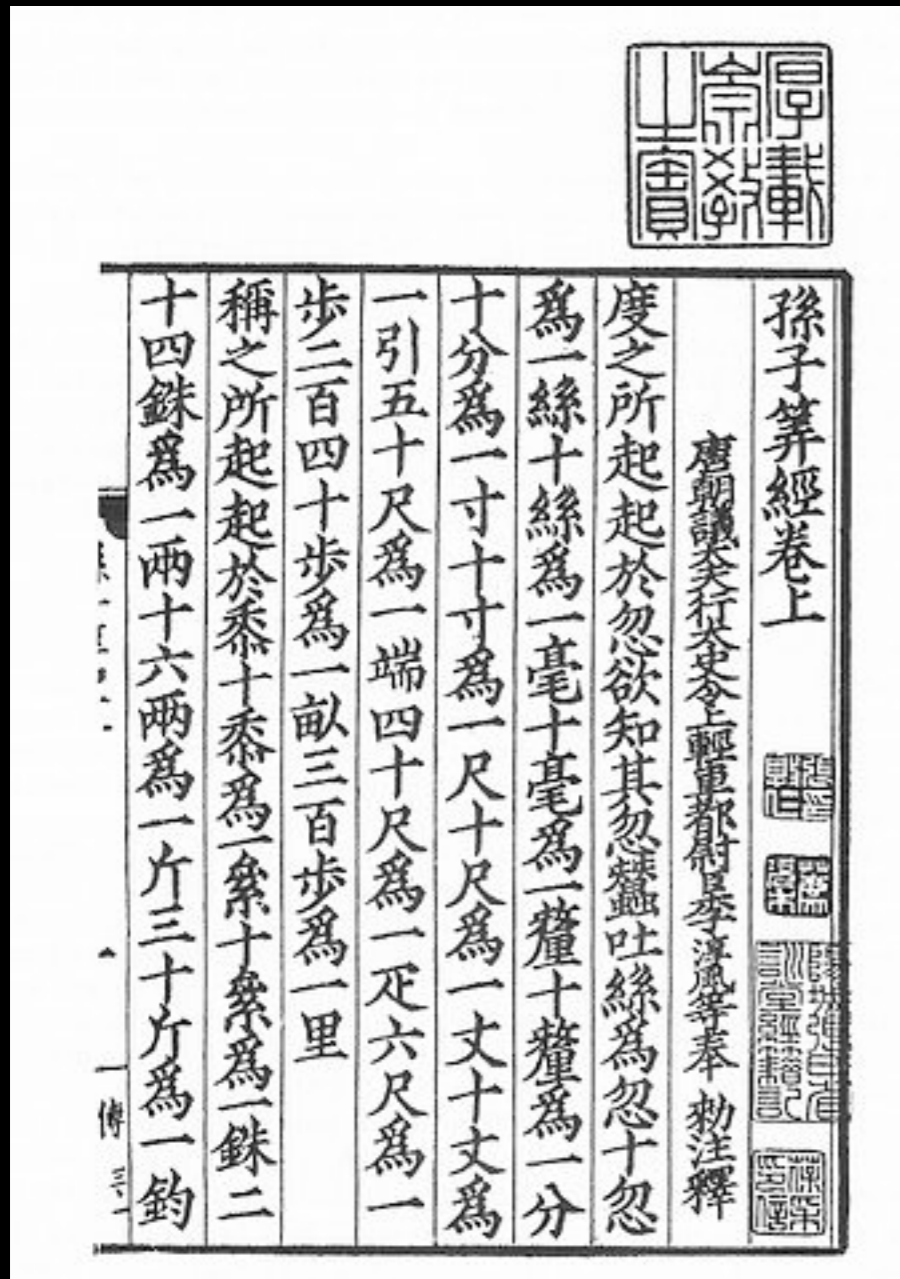 厚載
崇教
之寶
孫子筭經卷上
唐朝議大夫行太史令上輕車都尉臣李淳風等奉 勑注釋
度之所起起於忽欲知其忽蠶吐絲爲忽十忽
爲一絲十絲爲一毫十毫爲一釐十釐爲一分
十分爲一寸十寸爲一尺十尺爲一丈十丈爲
一引五十尺爲一端四十尺爲一疋六尺爲一
步二百四十步爲一畝三百步爲一里
稱之所起起於黍十黍爲一絫十絫爲一銖二
十四銖爲一兩十六兩爲一斤三十斤爲一鈞